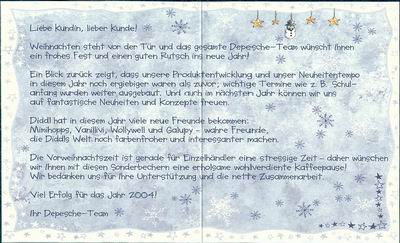 Liebe Kundin, lieber Kunde!
Weihnachten steht vor der Tür und das gesamte Depesche-Team wünscht Ihnen
ein frohes Fest und einen guten Rutsch ins neue Jahr!
Ein Blick zurück zeigt, dass unsere Produktentwicklung und unser Neuheitentempo
in diesem Jahr noch ergiebiger waren als zuvor; wichtige Termine wie z. B. Schul-
anfang wurden weiter ausgebaut. Und auch im nächsten Jahr können wir uns
auf fantastische Neuheiten und Konzepte freuen.
Diddl hat in diesem Jahr viele neue Freunde bekommen:
Mimihopps, Vanillivi, Wollywell und Galupy - wahre Freunde,
die Diddls Welt noch farbenfroher und interessanter machen.
Die Vorweihnachtszeit ist gerade für Einzelhändler eine stressige Zeit - daher wünschen
wir Ihnen mit diesen Sonderbechern eine erholsame wohlverdiente Kaffeepause!
Wir bedanken uns für Ihre Unterstützung und die nette Zusammenarbeit.
Viel Erfolg für das Jahr 2004!
Ihr Depesche-Team